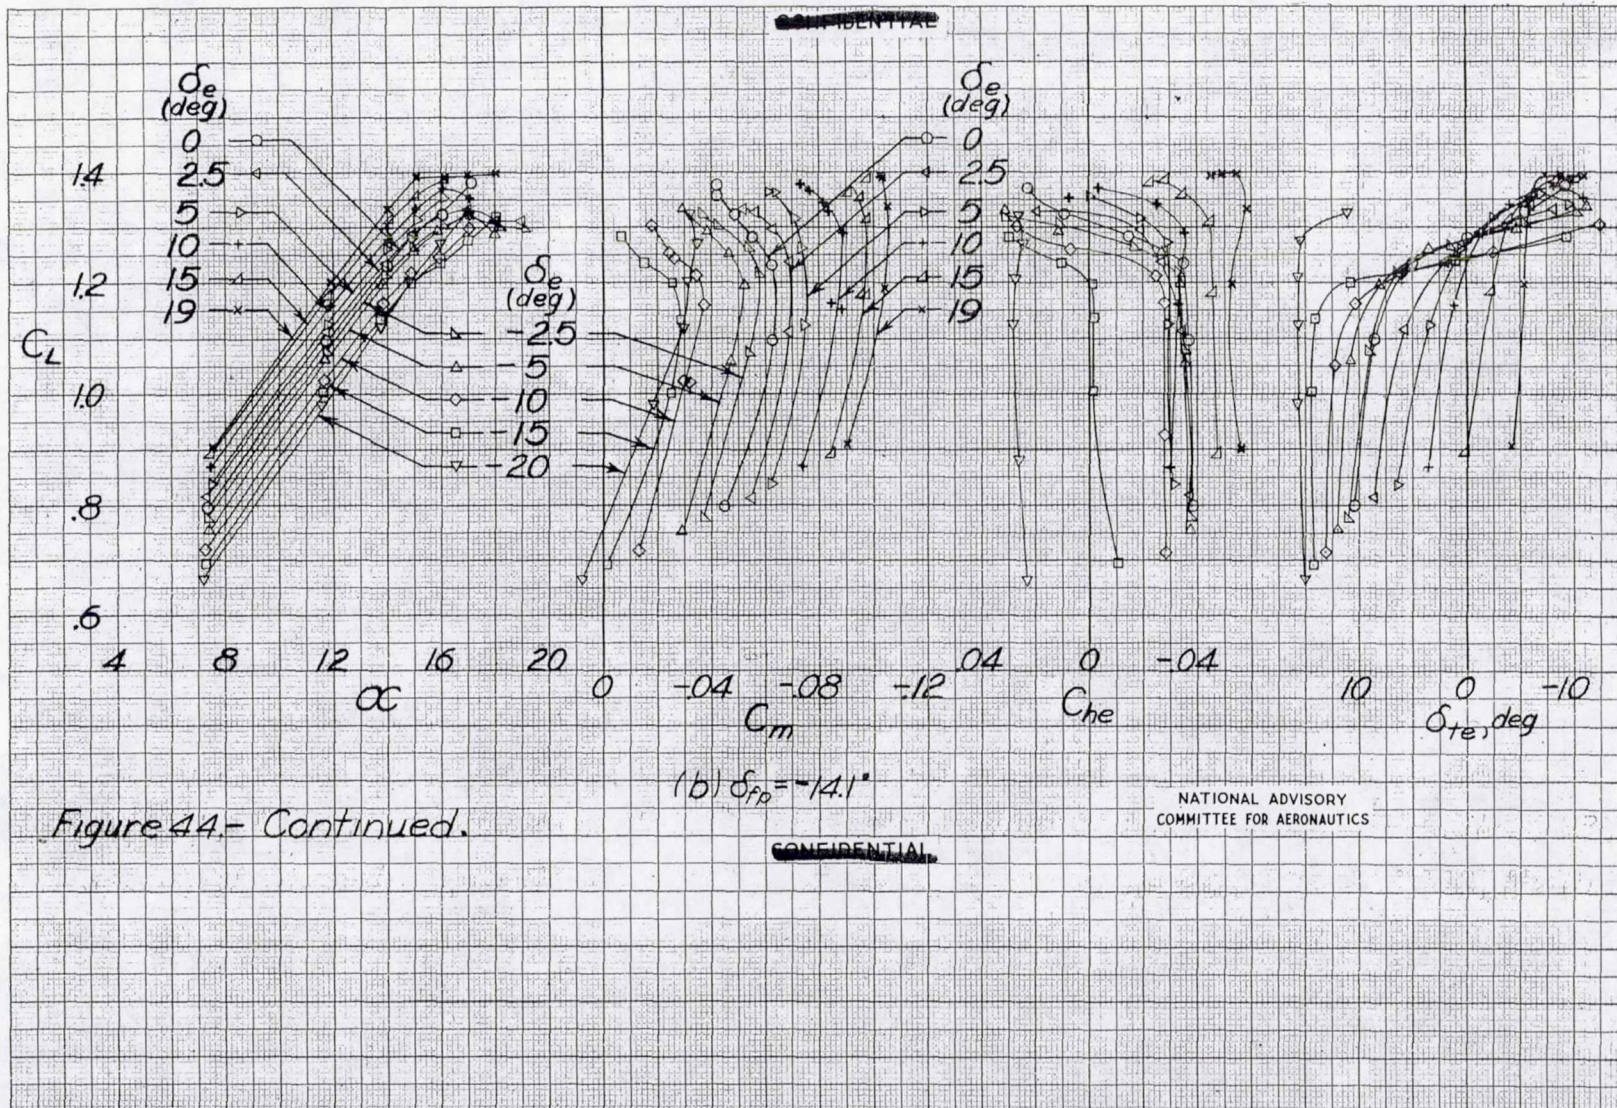 CONFIDENTIAL
δe
(deg)
0
2.5
5
10
15
19
δe
(deg)
-2.5
-5
-10
-15
-20
δe
(deg)
0
2.5
5
10
15
19
1.4
1.2
CL
1.0
.8
.6
4 8 12 16 20
α
0 -.04 -.08 -.12
Cm
.04 0 -.04
Che
10 0 -10
δte, deg
(b) δfp = -14.1°
Figure 44.- Continued.
NATIONAL ADVISORY
COMMITTEE FOR AERONAUTICS
CONFIDENTIAL